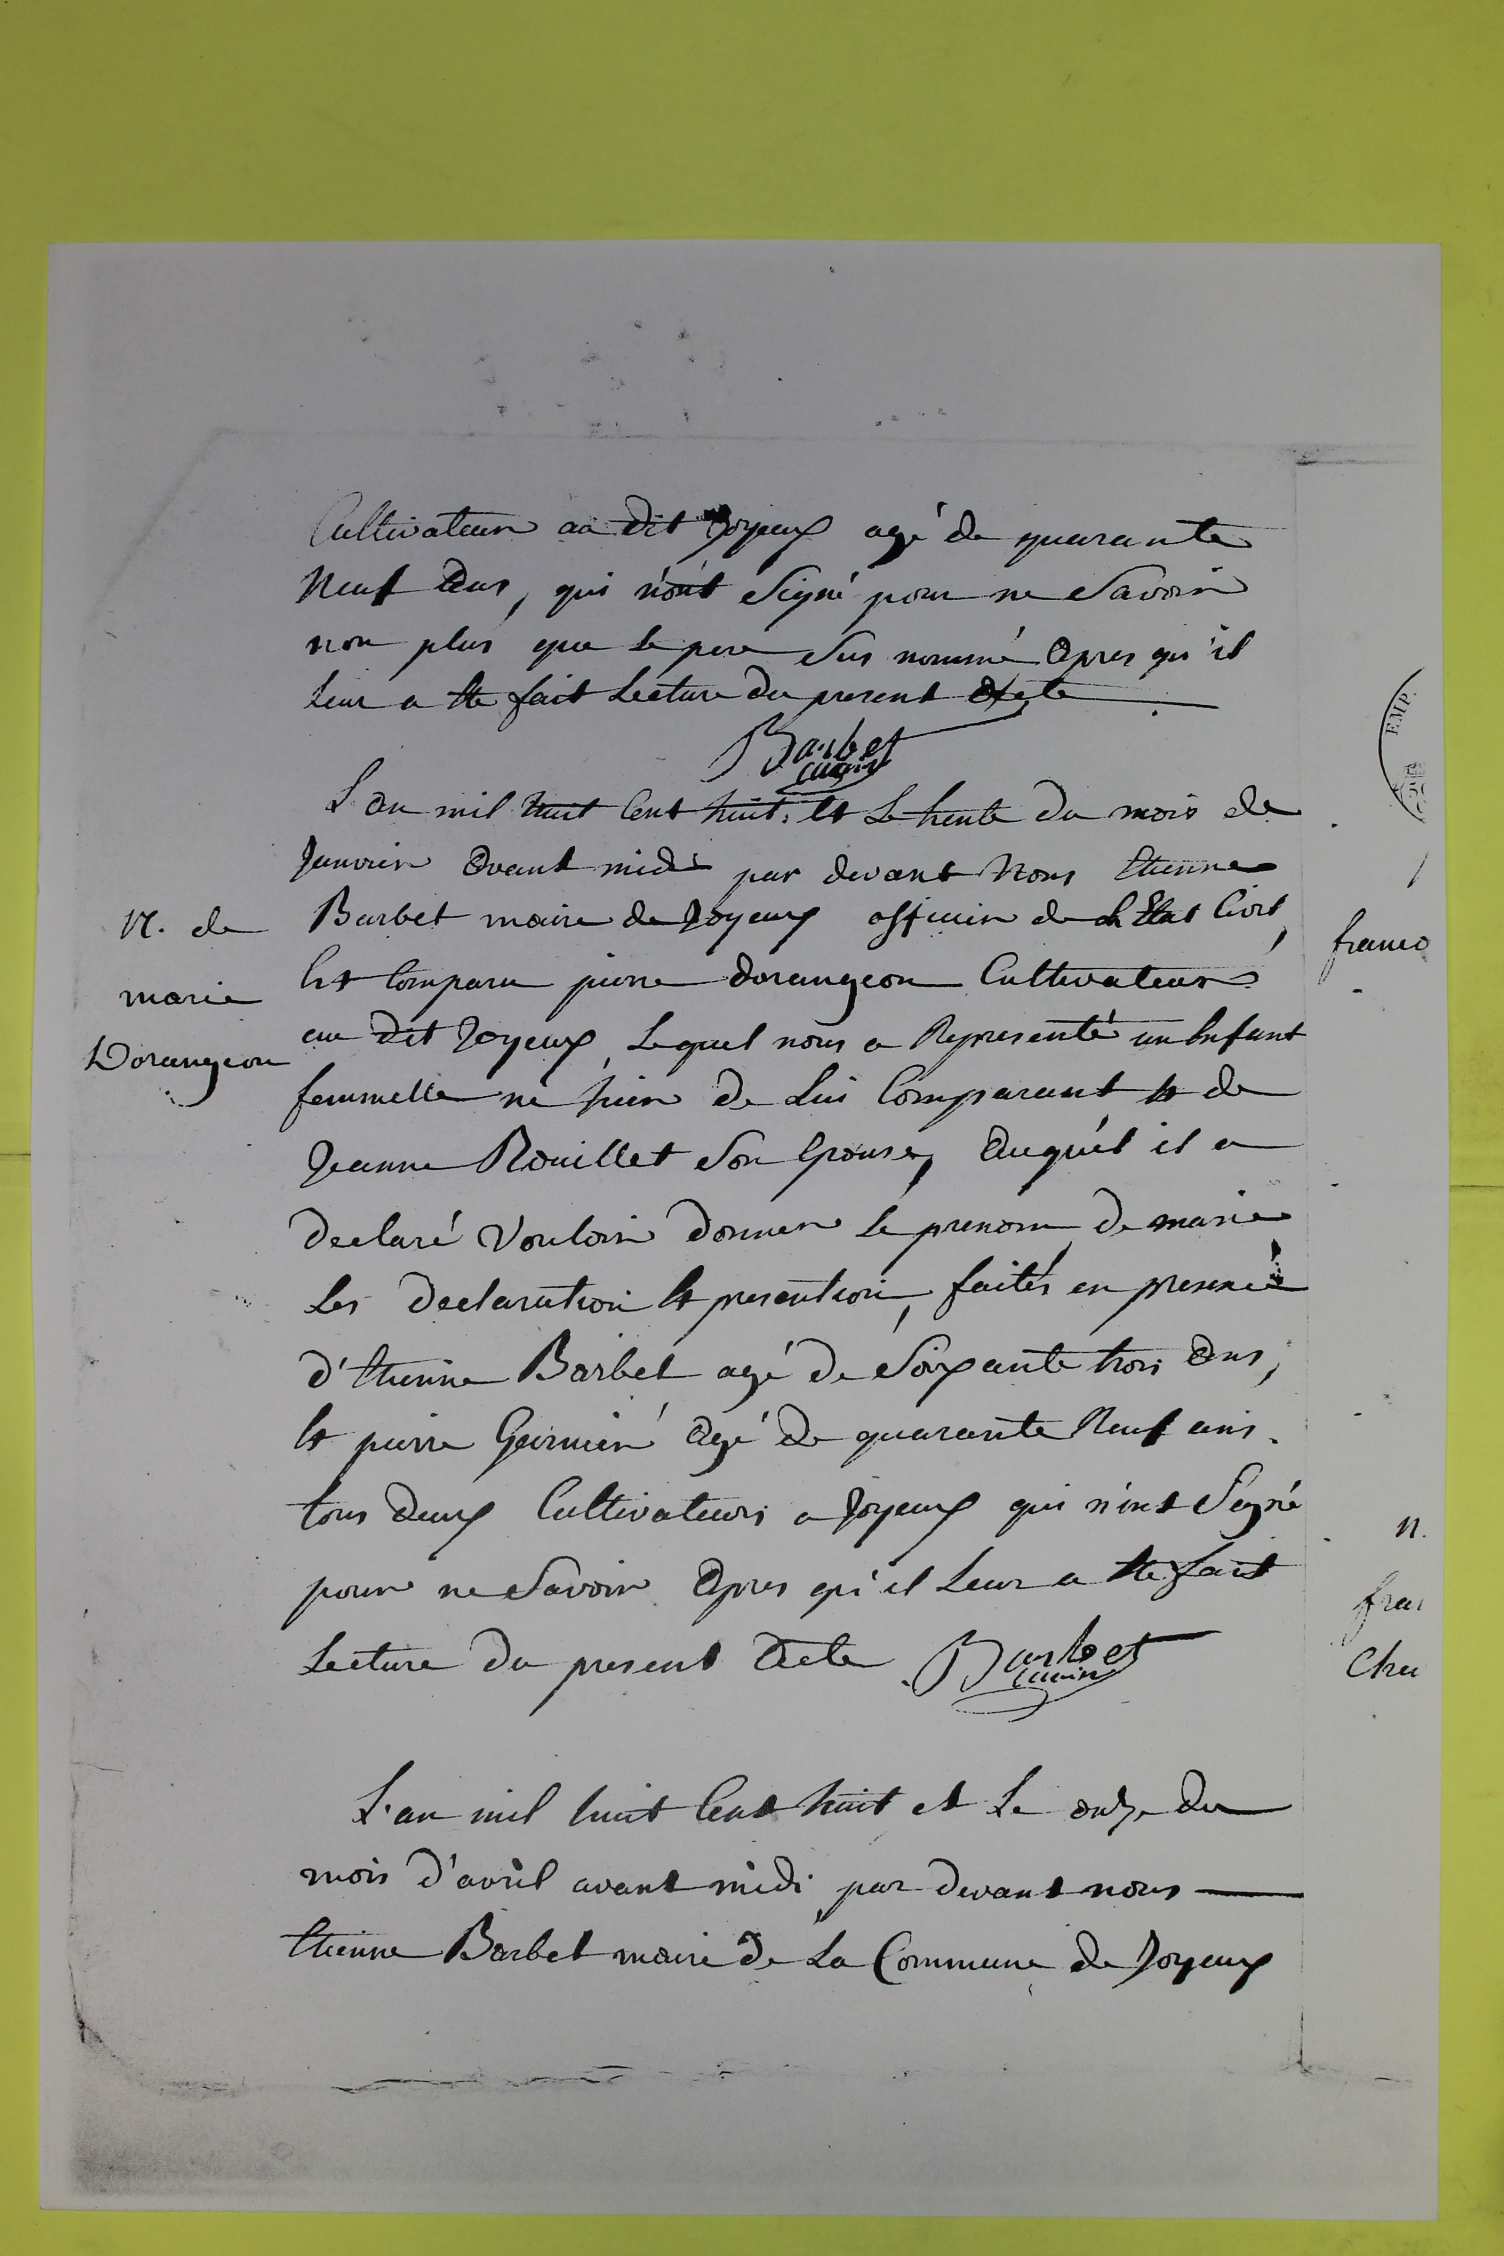 Cultivateur au dit Joyeux agé de quarante
Neuf Ans, qui n'ont Signé pour ne Savoir
non plus que le pere Sus nommé Apres qu'il
leur a Ete fait Lecture du present Acte
Barbet
maire
L'an mil huit Cent huit, Et Le trente du mois de
Janvier Avant midi par devant Nous Etienne
Barbet maire de Joyeux officier de L'Etat Civil,
Est Comparu pierre dorangeon Cultivateur
au dit Joyeux, Lequel nous a Representé un Enfant
femmelle né hier de Lui Comparant Et de
Jeanne Rouillet Son Epouse, Auquel il a
declaré Vouloir donner Le prenom de marie
Les declaration Et presention, faités en presence
d'Etienne Barbet agé de Soixante trois Ans,
Et pierre Gernier Agé de quarante Neuf ans.
tous deux Cultivateurs a Joyeux qui n'ont Signé
pour ne Savoir Apres qu'il Leur a Ete fait
Lecture du present Acte Barbet
maire
N. de
marie
Dorangeon
L'an mil huit Cent huit et Le onze du
mois d'avril avant midi par devant nous
Etienne Barbet maire de La Commune de Joyeux
EMP.
franco
n.
fra